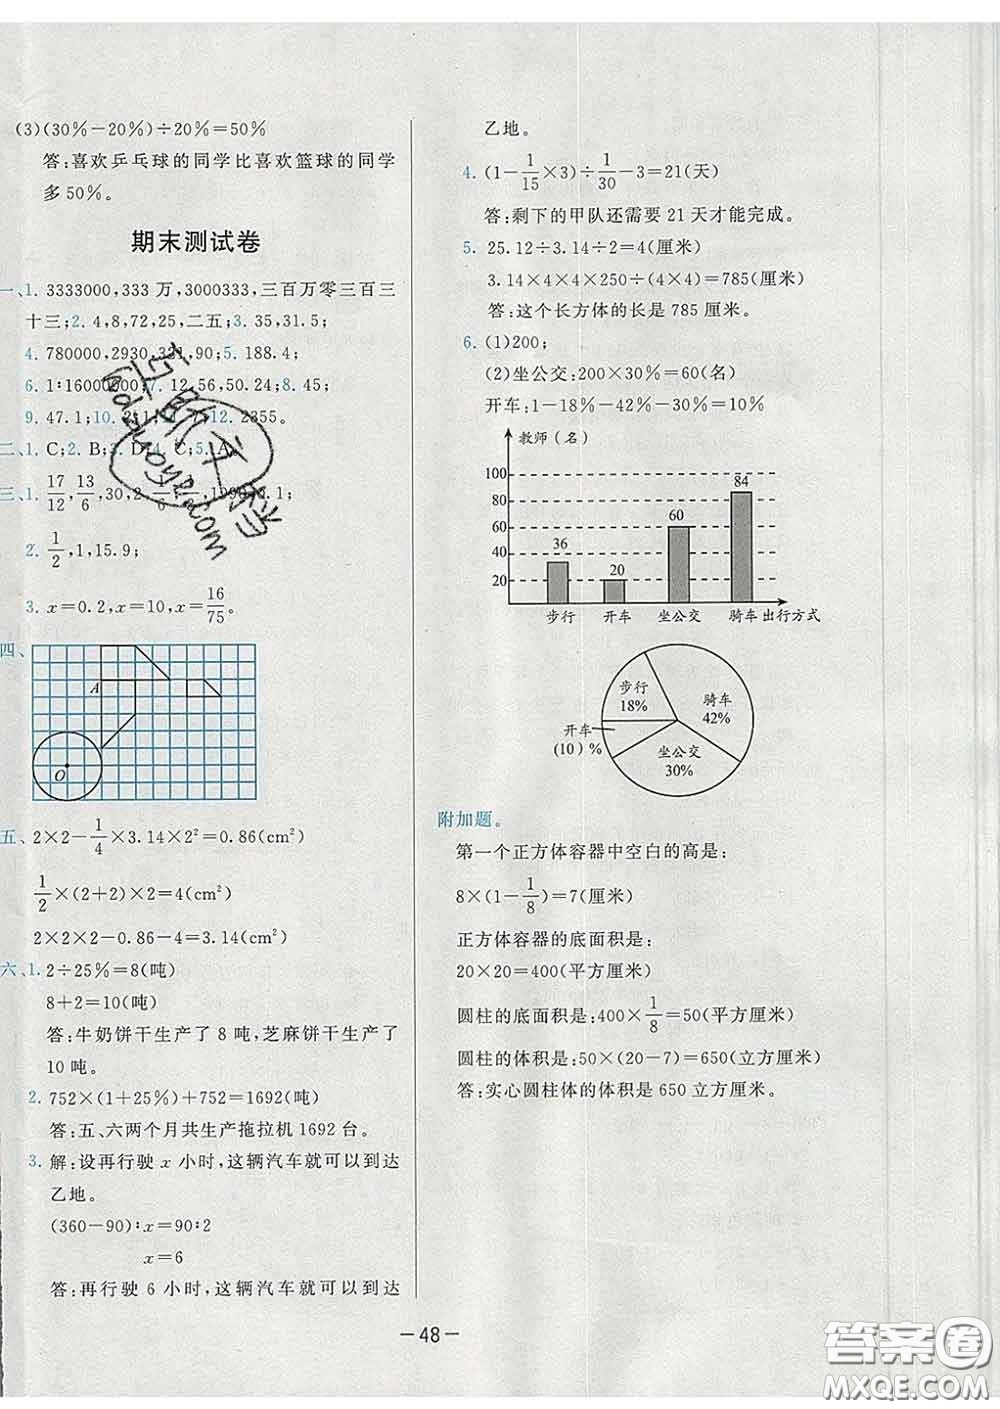 (3)(30%－20%)÷20%＝50%
答:喜欢乒乓球的同学比喜欢篮球的同学
多50%。
期末测试卷
一、1. 3333000,333万,3000333,三百万零三百三
十三;2. 4,8,72,25,二五;3. 35,31.5;
4. 780000,2930,321,90;5. 188.4;
6. 1∶16000000;7. 12,56,50.24;8. 45;
9. 47.1;10. 2;1;11. 7;12. 2355。
二、1. C;2. B;3. D;4. C;5. A。
三、1. 17/12,13/6,30,2,1/6,1000,0.1;
2. 1/2,1,15.9;
3. x＝0.2,x＝10,x＝16/75。
四、
A
O
五、2×2－1/4×3.14×2²＝0.86(cm²)
1/2×(2＋2)×2＝4(cm²)
2×2×2－0.86－4＝3.14(cm²)
六、1. 2÷25%＝8(吨)
8＋2＝10(吨)
答:牛奶饼干生产了8吨,芝麻饼干生产了
10吨。
2. 752×(1＋25%)＋752＝1692(吨)
答:五、六两个月共生产拖拉机1692台。
3. 解:设再行驶x小时,这辆汽车就可以到达
乙地。
(360－90)∶x＝90∶2
x＝6
答:再行驶6小时,这辆汽车就可以到达
乙地。
4. (1－1/15×3)÷1/30－3＝21(天)
答:剩下的甲队还需要21天才能完成。
5. 25.12÷3.14÷2＝4(厘米)
3.14×4×4×250÷(4×4)＝785(厘米)
答:这个长方体的长是785厘米。
6. (1)200;
(2)坐公交:200×30%＝60(名)
开车:1－18%－42%－30%＝10%
教师(名)
100
80
60
40
20
36
20
60
84
步行 开车 坐公交 骑车 出行方式
步行
18%
骑车
42%
开车
(10)%
坐公交
30%
附加题。
第一个正方体容器中空白的高是:
8×(1－1/8)＝7(厘米)
正方体容器的底面积是:
20×20＝400(平方厘米)
圆柱的底面积是:400×1/8＝50(平方厘米)
圆柱的体积是:50×(20－7)＝650(立方厘米)
答:实心圆柱体的体积是650立方厘米。
－48－
答案圈
MXQE.COM